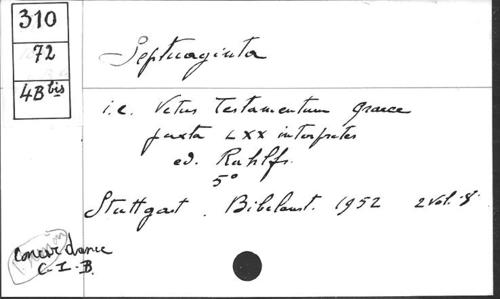 310
72
4B bis
Septuaginta
i.e. Vetus Testamentum graece
juxta LXX interpretes
ed. Rahlfs
5°
Stuttgart. Bibelanst. 1952 2 vol. 8°
Concordance
C-I-B.